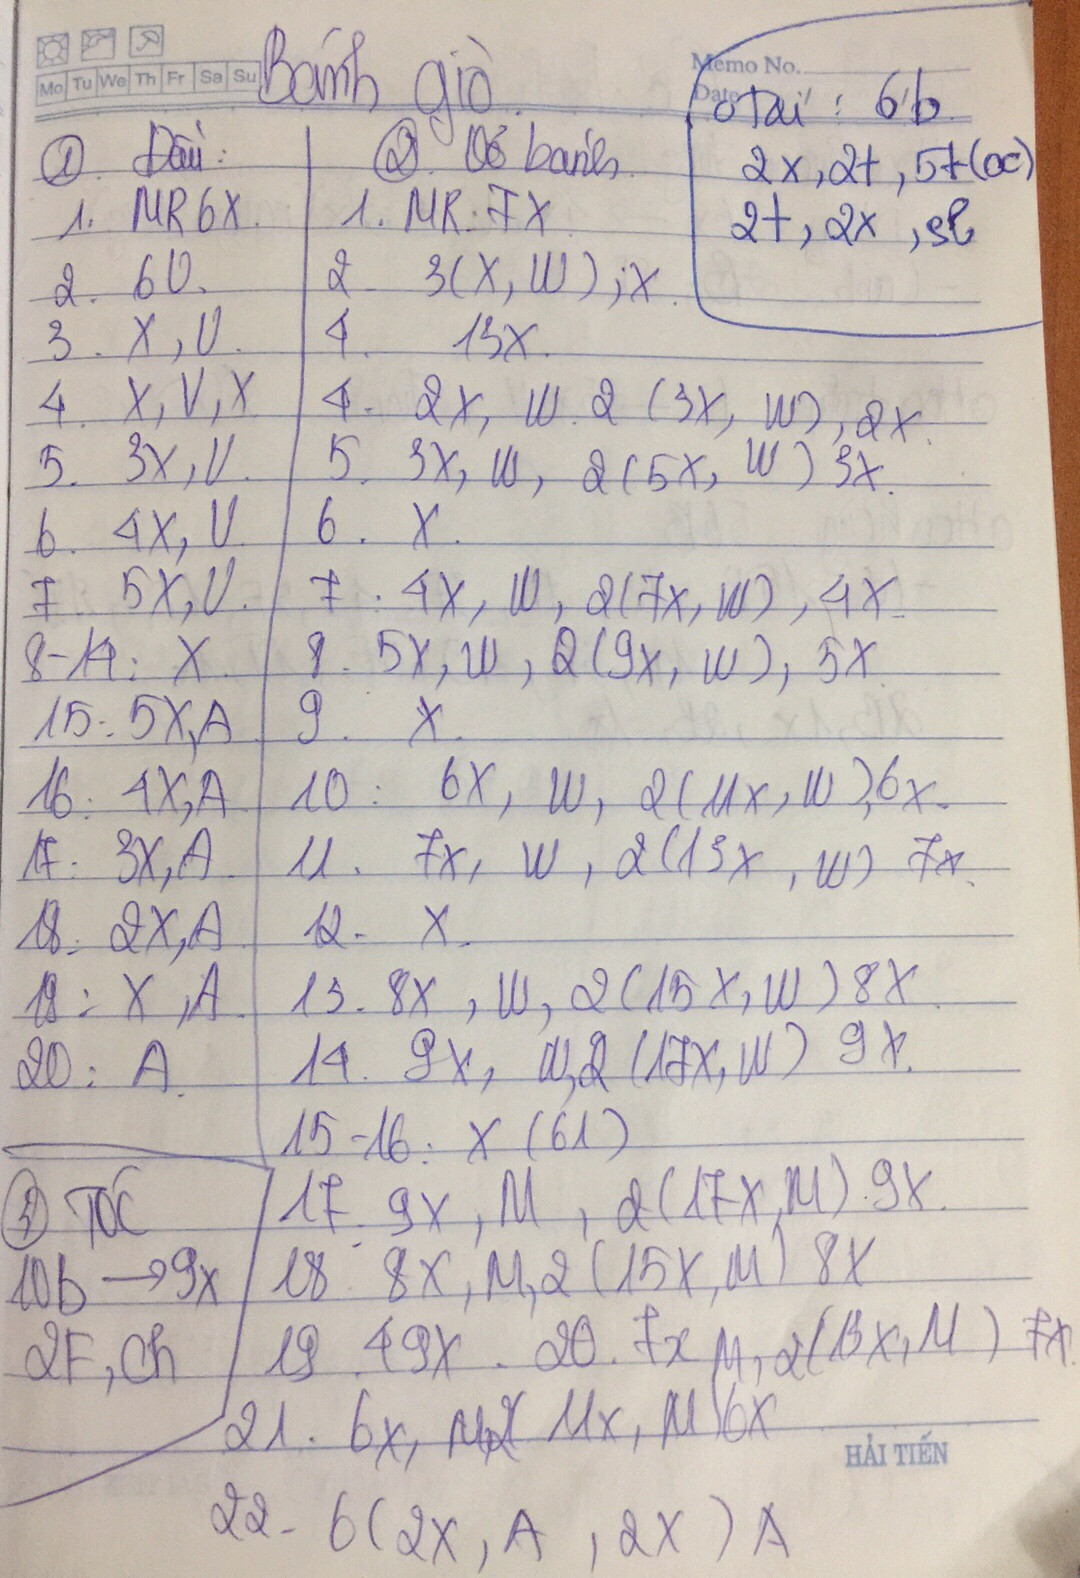 Mo Tu We Th Fr Sa Su
Bánh giò
Memo No.
Date
① Đầu:
1. MR 6X.
2. 6V.
3. X, V.
4. X, V, X
5. 3X, V.
6. 4X, V.
7. 5X, V.
8-14: X
15: 5X, A
16: 4X, A
17: 3X, A
18: 2X, A
19: X, A
20: A.
② Vỏ bánh
1. MR: 7X
2 3(X, W), X.
4. 13X.
4. 2X, W. 2 (3X, W), 2X.
5. 3X, W, 2(5X, W) 3X.
6. X.
7. 4X, W, 2(7X, W), 4X
8. 5X, W, 2(9X, W), 5X
9. X.
10: 6X, W, 2(11X, W), 6X.
11. 7X, W, 2(13X, W) 7X.
12. X.
13. 8X, W, 2(15X, W) 8X
14. 9X, W, 2 (17X, W) 9X.
15-16: X (61)
17. 9X, M, 2(17X, M). 9X.
18. 8X, M, 2 (15X, M) 8X
19. 49X. 20. 7X M, 2(13X, M) 7X.
21. 6X, M, 2 11X, M) 6X
22- 6(2X, A, 2X) A
Tai: 6b
2x, 2t, 5t(oc)
2t, 2x, sl
③ TÓC
10b → 9x
2F, Ch
HẢI TIẾN